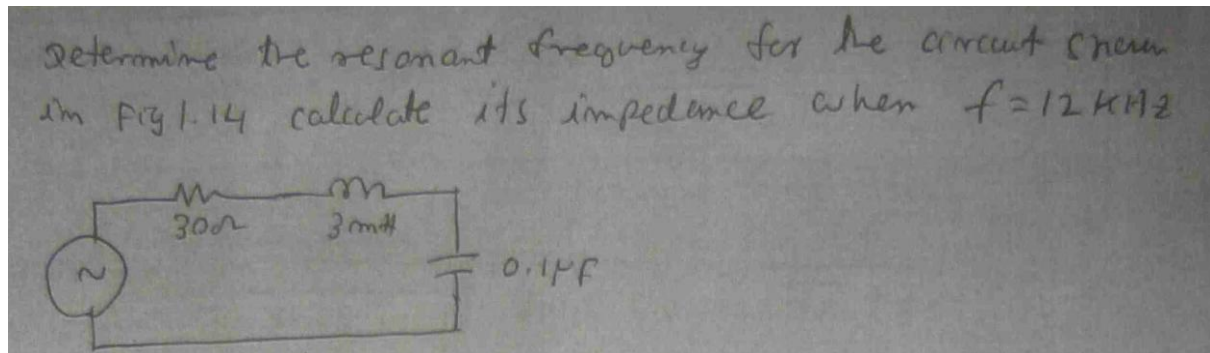 Determine the resonant frequency for the circuit shown
in Fig 1.14 calculate its impedance when f = 12 KHz
30Ω 3mH
~ 0.1μF